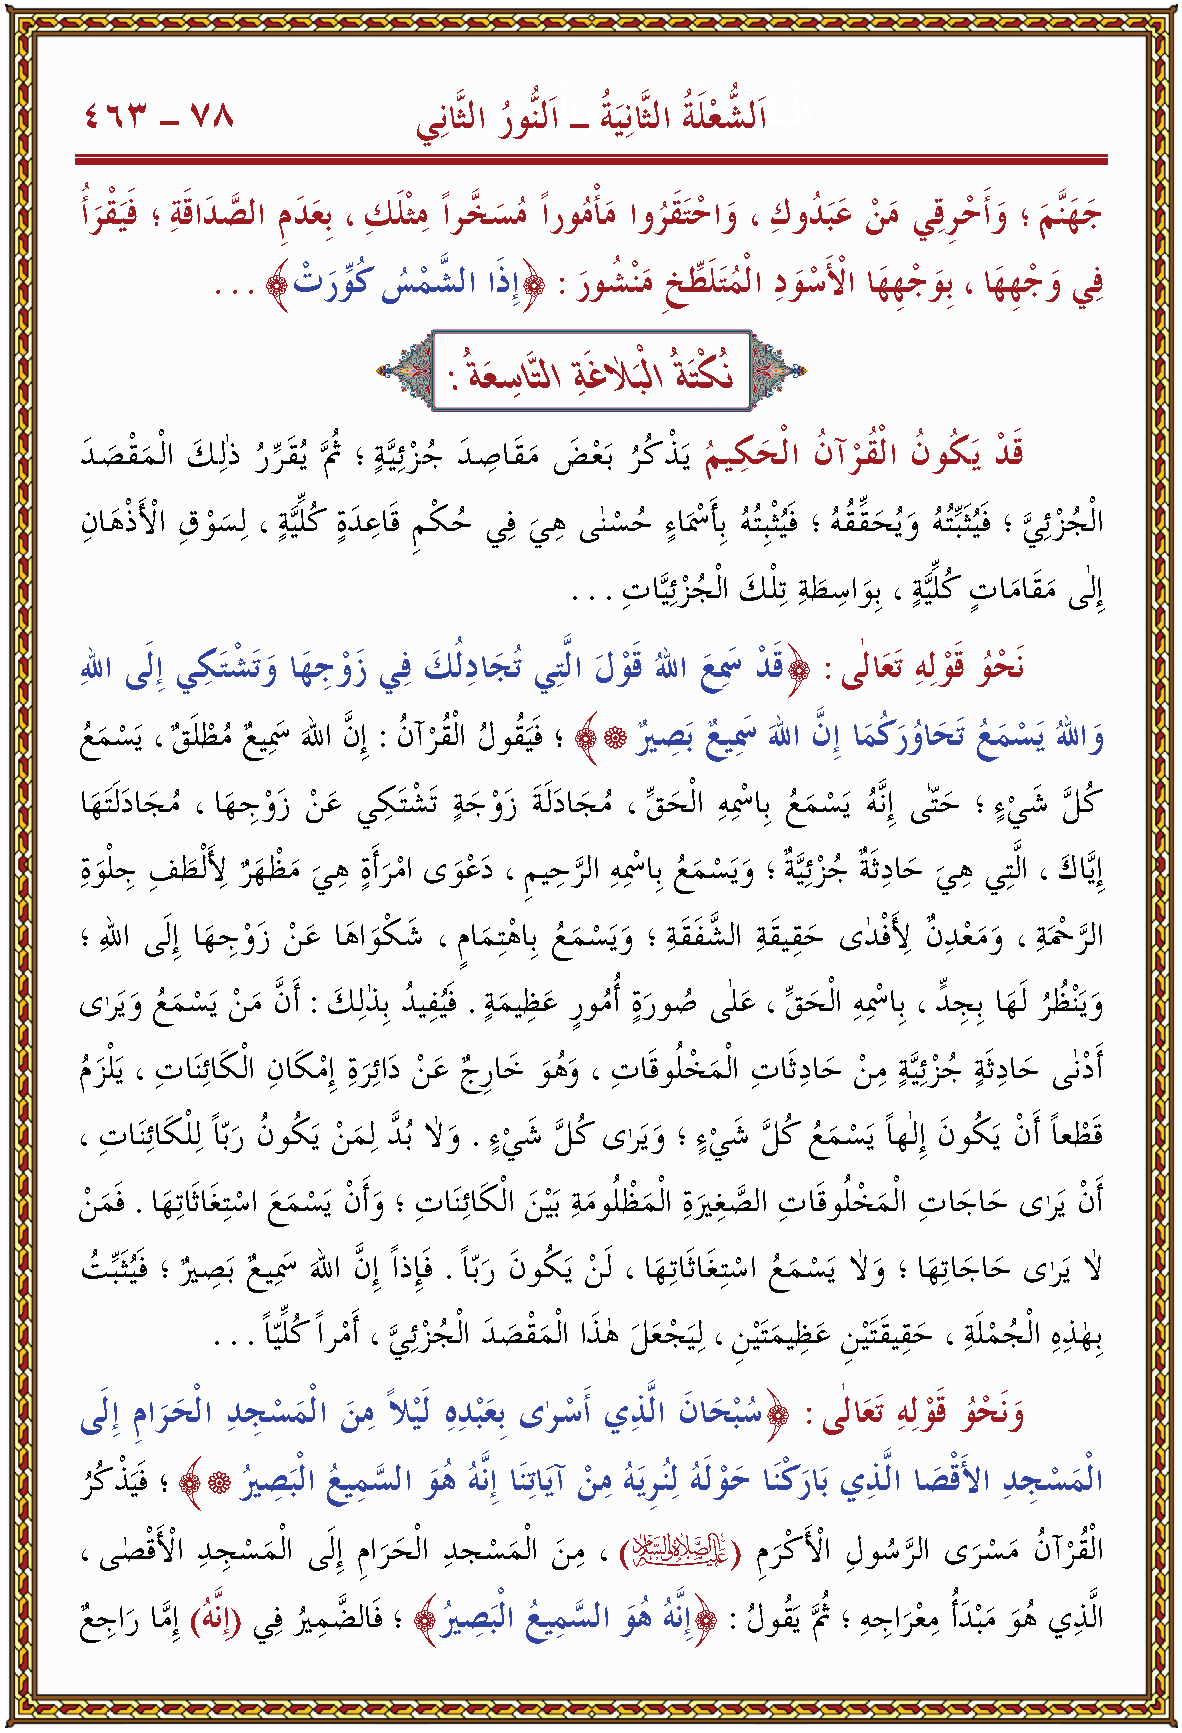 اَلشُّعْلَةُ الثَّانِيَةُ ـ اَلنُّورُ الثَّانِي ٧٨ ـ ٤٦٣
جَهَنَّمَ ؛ وَأَحْرِقِي مَنْ عَبَدُوكِ ، وَاحْتَقَرُوا مَأْمُوراً مُسَخَّراً مِثْلَكِ ، بِعَدَمِ الصَّدَاقَةِ ؛ فَيَقْرَأُ
فِي وَجْهِهَا ، بِوَجْهِهَا الْأَسْوَدِ الْمُتَلَطِّخِ مَنْشُورَ : ﴿إِذَا الشَّمْسُ كُوِّرَتْ﴾ . . .
نُكْتَةُ الْبَلاَغَةِ التَّاسِعَةُ :
قَدْ يَكُونُ الْقُرْآنُ الْحَكِيمُ يَذْكُرُ بَعْضَ مَقَاصِدَ جُزْئِيَّةٍ ؛ ثُمَّ يُقَرِّرُ ذٰلِكَ الْمَقْصَدَ
الْجُزْئِيَّ ؛ فَيُثَبِّتُهُ وَيُحَقِّقُهُ ؛ فَيُثْبِتُهُ بِأَسْمَاءٍ حُسْنٰى هِيَ فِي حُكْمِ قَاعِدَةٍ كُلِّيَّةٍ ، لِسَوْقِ الْأَذْهَانِ
إِلٰى مَقَامَاتٍ كُلِّيَّةٍ ، بِوَاسِطَةِ تِلْكَ الْجُزْئِيَّاتِ . . .
نَحْوُ قَوْلِهِ تَعَالٰى : ﴿قَدْ سَمِعَ اللهُ قَوْلَ الَّتِي تُجَادِلُكَ فِي زَوْجِهَا وَتَشْتَكِي إِلَى اللهِ
وَاللهُ يَسْمَعُ تَحَاوُرَكُمَا إِنَّ اللهَ سَمِيعٌ بَصِيرٌ ۝﴾ ؛ فَيَقُولُ الْقُرْآنُ : إِنَّ اللهَ سَمِيعٌ مُطْلَقٌ ، يَسْمَعُ
كُلَّ شَيْءٍ ؛ حَتّٰى إِنَّهُ يَسْمَعُ بِاسْمِهِ الْحَقِّ ، مُجَادَلَةَ زَوْجَةٍ تَشْتَكِي عَنْ زَوْجِهَا ، مُجَادَلَتَهَا
إِيَّاكَ ، الَّتِي هِيَ حَادِثَةٌ جُزْئِيَّةٌ ؛ وَيَسْمَعُ بِاسْمِهِ الرَّحِيمِ ، دَعْوَى امْرَأَةٍ هِيَ مَظْهَرٌ لِأَلْطَفِ جِلْوَةِ
الرَّحْمَةِ ، وَمَعْدِنٌ لِأَفْدٰى حَقِيقَةِ الشَّفَقَةِ ؛ وَيَسْمَعُ بِاهْتِمَامٍ ، شَكْوَاهَا عَنْ زَوْجِهَا إِلَى اللهِ ؛
وَيَنْظُرُ لَهَا بِجِدٍّ ، بِاسْمِهِ الْحَقِّ ، عَلٰى صُورَةِ أُمُورٍ عَظِيمَةٍ . فَيُفِيدُ بِذٰلِكَ : أَنَّ مَنْ يَسْمَعُ وَيَرٰى
أَدْنٰى حَادِثَةٍ جُزْئِيَّةٍ مِنْ حَادِثَاتِ الْمَخْلُوقَاتِ ، وَهُوَ خَارِجٌ عَنْ دَائِرَةِ إِمْكَانِ الْكَائِنَاتِ ، يَلْزَمُ
قَطْعاً أَنْ يَكُونَ إِلٰهاً يَسْمَعُ كُلَّ شَيْءٍ ؛ وَيَرٰى كُلَّ شَيْءٍ . وَلاٰ بُدَّ لِمَنْ يَكُونُ رَبّاً لِلْكَائِنَاتِ ،
أَنْ يَرٰى حَاجَاتِ الْمَخْلُوقَاتِ الصَّغِيرَةِ الْمَظْلُومَةِ بَيْنَ الْكَائِنَاتِ ؛ وَأَنْ يَسْمَعَ اسْتِغَاثَاتِهَا . فَمَنْ
لاٰ يَرٰى حَاجَاتِهَا ؛ وَلاٰ يَسْمَعُ اسْتِغَاثَاتِهَا ، لَنْ يَكُونَ رَبّاً . فَإِذاً إِنَّ اللهَ سَمِيعٌ بَصِيرٌ ؛ فَيُثَبِّتُ
بِهٰذِهِ الْجُمْلَةِ ، حَقِيقَتَيْنِ عَظِيمَتَيْنِ ، لِيَجْعَلَ هٰذَا الْمَقْصَدَ الْجُزْئِيَّ ، أَمْراً كُلِّيّاً . . .
وَنَحْوُ قَوْلِهِ تَعَالٰى : ﴿سُبْحَانَ الَّذِي أَسْرٰى بِعَبْدِهِ لَيْلاً مِنَ الْمَسْجِدِ الْحَرَامِ إِلَى
الْمَسْجِدِ الأَقْصَا الَّذِي بَارَكْنَا حَوْلَهُ لِنُرِيَهُ مِنْ آيَاتِنَا إِنَّهُ هُوَ السَّمِيعُ الْبَصِيرُ ۝﴾ ؛ فَيَذْكُرُ
الْقُرْآنُ مَسْرَى الرَّسُولِ الْأَكْرَمِ (عَلَيْهِ الصَّلَاةُ وَالسَّلَامُ) ، مِنَ الْمَسْجدِ الْحَرَامِ إِلَى الْمَسْجِدِ الْأَقْصٰى ،
الَّذِي هُوَ مَبْدَأُ مِعْرَاجِهِ ؛ ثُمَّ يَقُولُ : ﴿إِنَّهُ هُوَ السَّمِيعُ الْبَصِيرُ﴾ ؛ فَالضَّمِيرُ فِي (إِنَّهُ) إِمَّا رَاجِعٌ